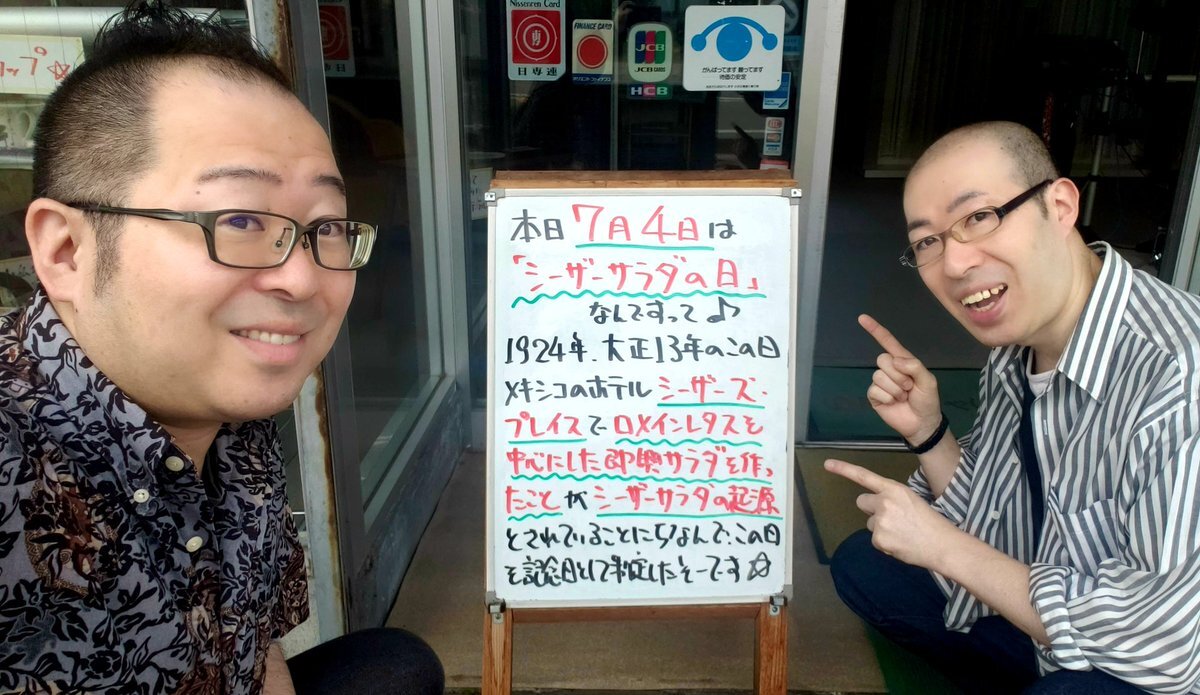 ップ☆
Nissenren Card
日専連
FINANCE CARD
JCB
JCB CARDS
HCB
がんばってます 願ってます
物価の安定
本日7月4日は
「シーザーサラダの日」
なんですって♪
1924年、大正13年のこの日
メキシコのホテル シーザーズ・
プレイスで ロメインレタスを
中心にした即興サラダを作っ
たことが シーザーサラダの起源
とされていることにちなんで、この日
を記念日として制定したそーです☆